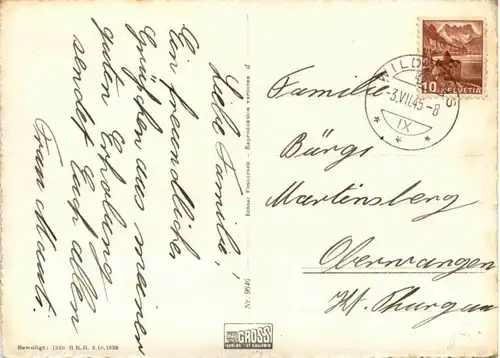 Liebe Familie!
Ein freundliches
Grüsschen aus meiner
guten Erholung
sendet Euch allen
Frau Mauti.
Nr. 9646
Echter Fotodruck - Reproduktion verboten
GROSS
Bewilligt: 1330 B.R.B. 3.10.1939
HELVETIA
10
-3.VII.45-8
IX
Familie
Bürgi
Martinsberg
Oberwangen
Kt. Thurgau